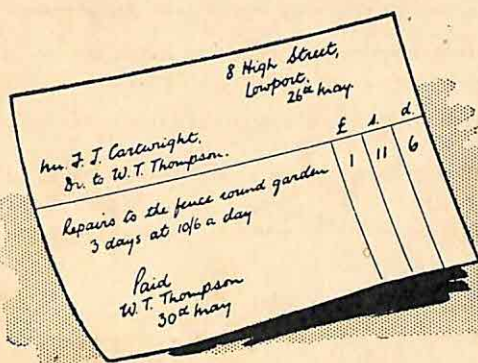 8 High Street,
Lowport.
26th May
Mr. F. T. Cartwright,
Dr. to W. T. Thompson.
£ s. d.
Repairs to the fence round garden
3 days at 10/6 a day 1 11 6
Paid
W. T. Thompson
30th May